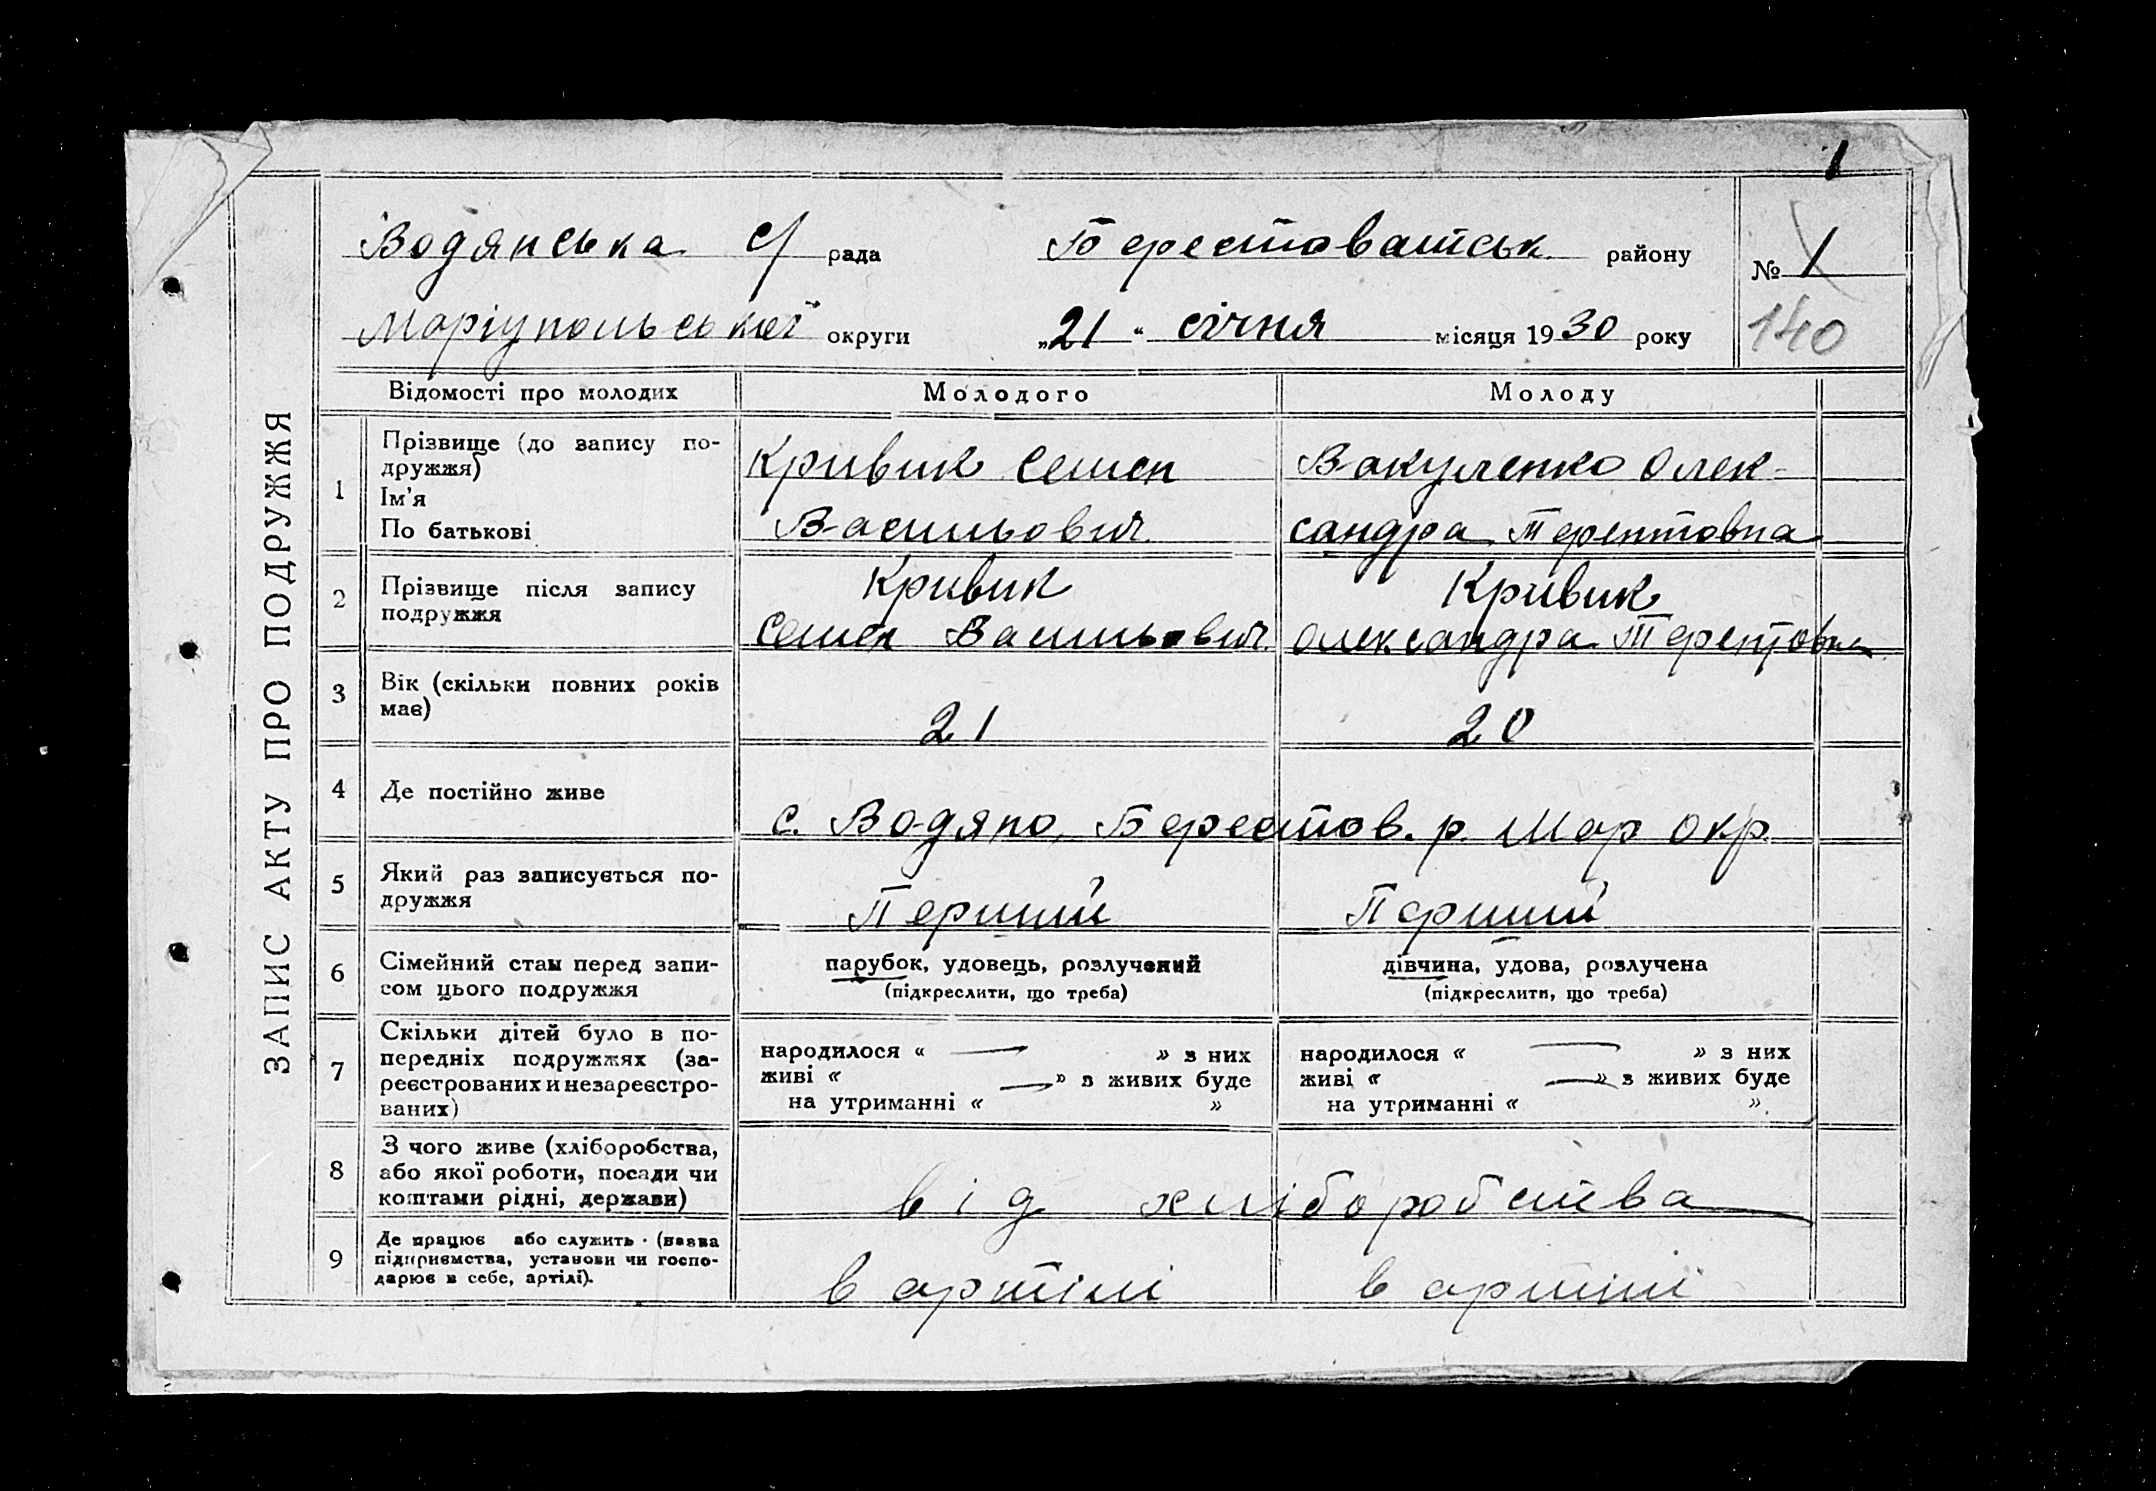 1
Водянська с/ рада Берестоватськ. району № 1
Маріупольської округи „21“ січня місяця 1930 року 140
ЗАПИС АКТУ ПРО ПОДРУЖЖЯ
Відомості про молодих Молодого Молоду
1 Прізвище (до запису по-
дружжя)
Ім’я
По батькові
Кривик Семен
Васильович
Вакуленко Олек-
сандра Терентовна
2 Прізвище після запису
подружжя
Кривик
Семен Васильович.
Кривик
Олександра Терентовна
3 Вік (скільки повних років
має)
21 20
4 Де постійно живе
с. Водяно, Берестов. р. Мар окр.
5 Який раз записується по-
дружжя
Перший Перший
6 Сімейний стан перед запи-
сом цього подружжя
парубок, удовець, розлучений
(підкреслити, що треба)
дівчина, удова, розлучена
(підкреслити, що треба)
7 Скільки дітей було в по-
передніх подружжях (за-
реєстрованих и незареєстро-
ваних)
народилося « — » з них
живі « — » з живих буде
на утриманні « »
народилося « — » з них
живі « — » з живих буде
на утриманні « »
8 З чого живе (хліборобства,
або якої роботи, посади чи
коштами рідні, держави)
від хліборобства
9 Де працює або служить (назва
підприємства, установи чи госпо-
дарює в себе, артілі).
в артілі в артілі